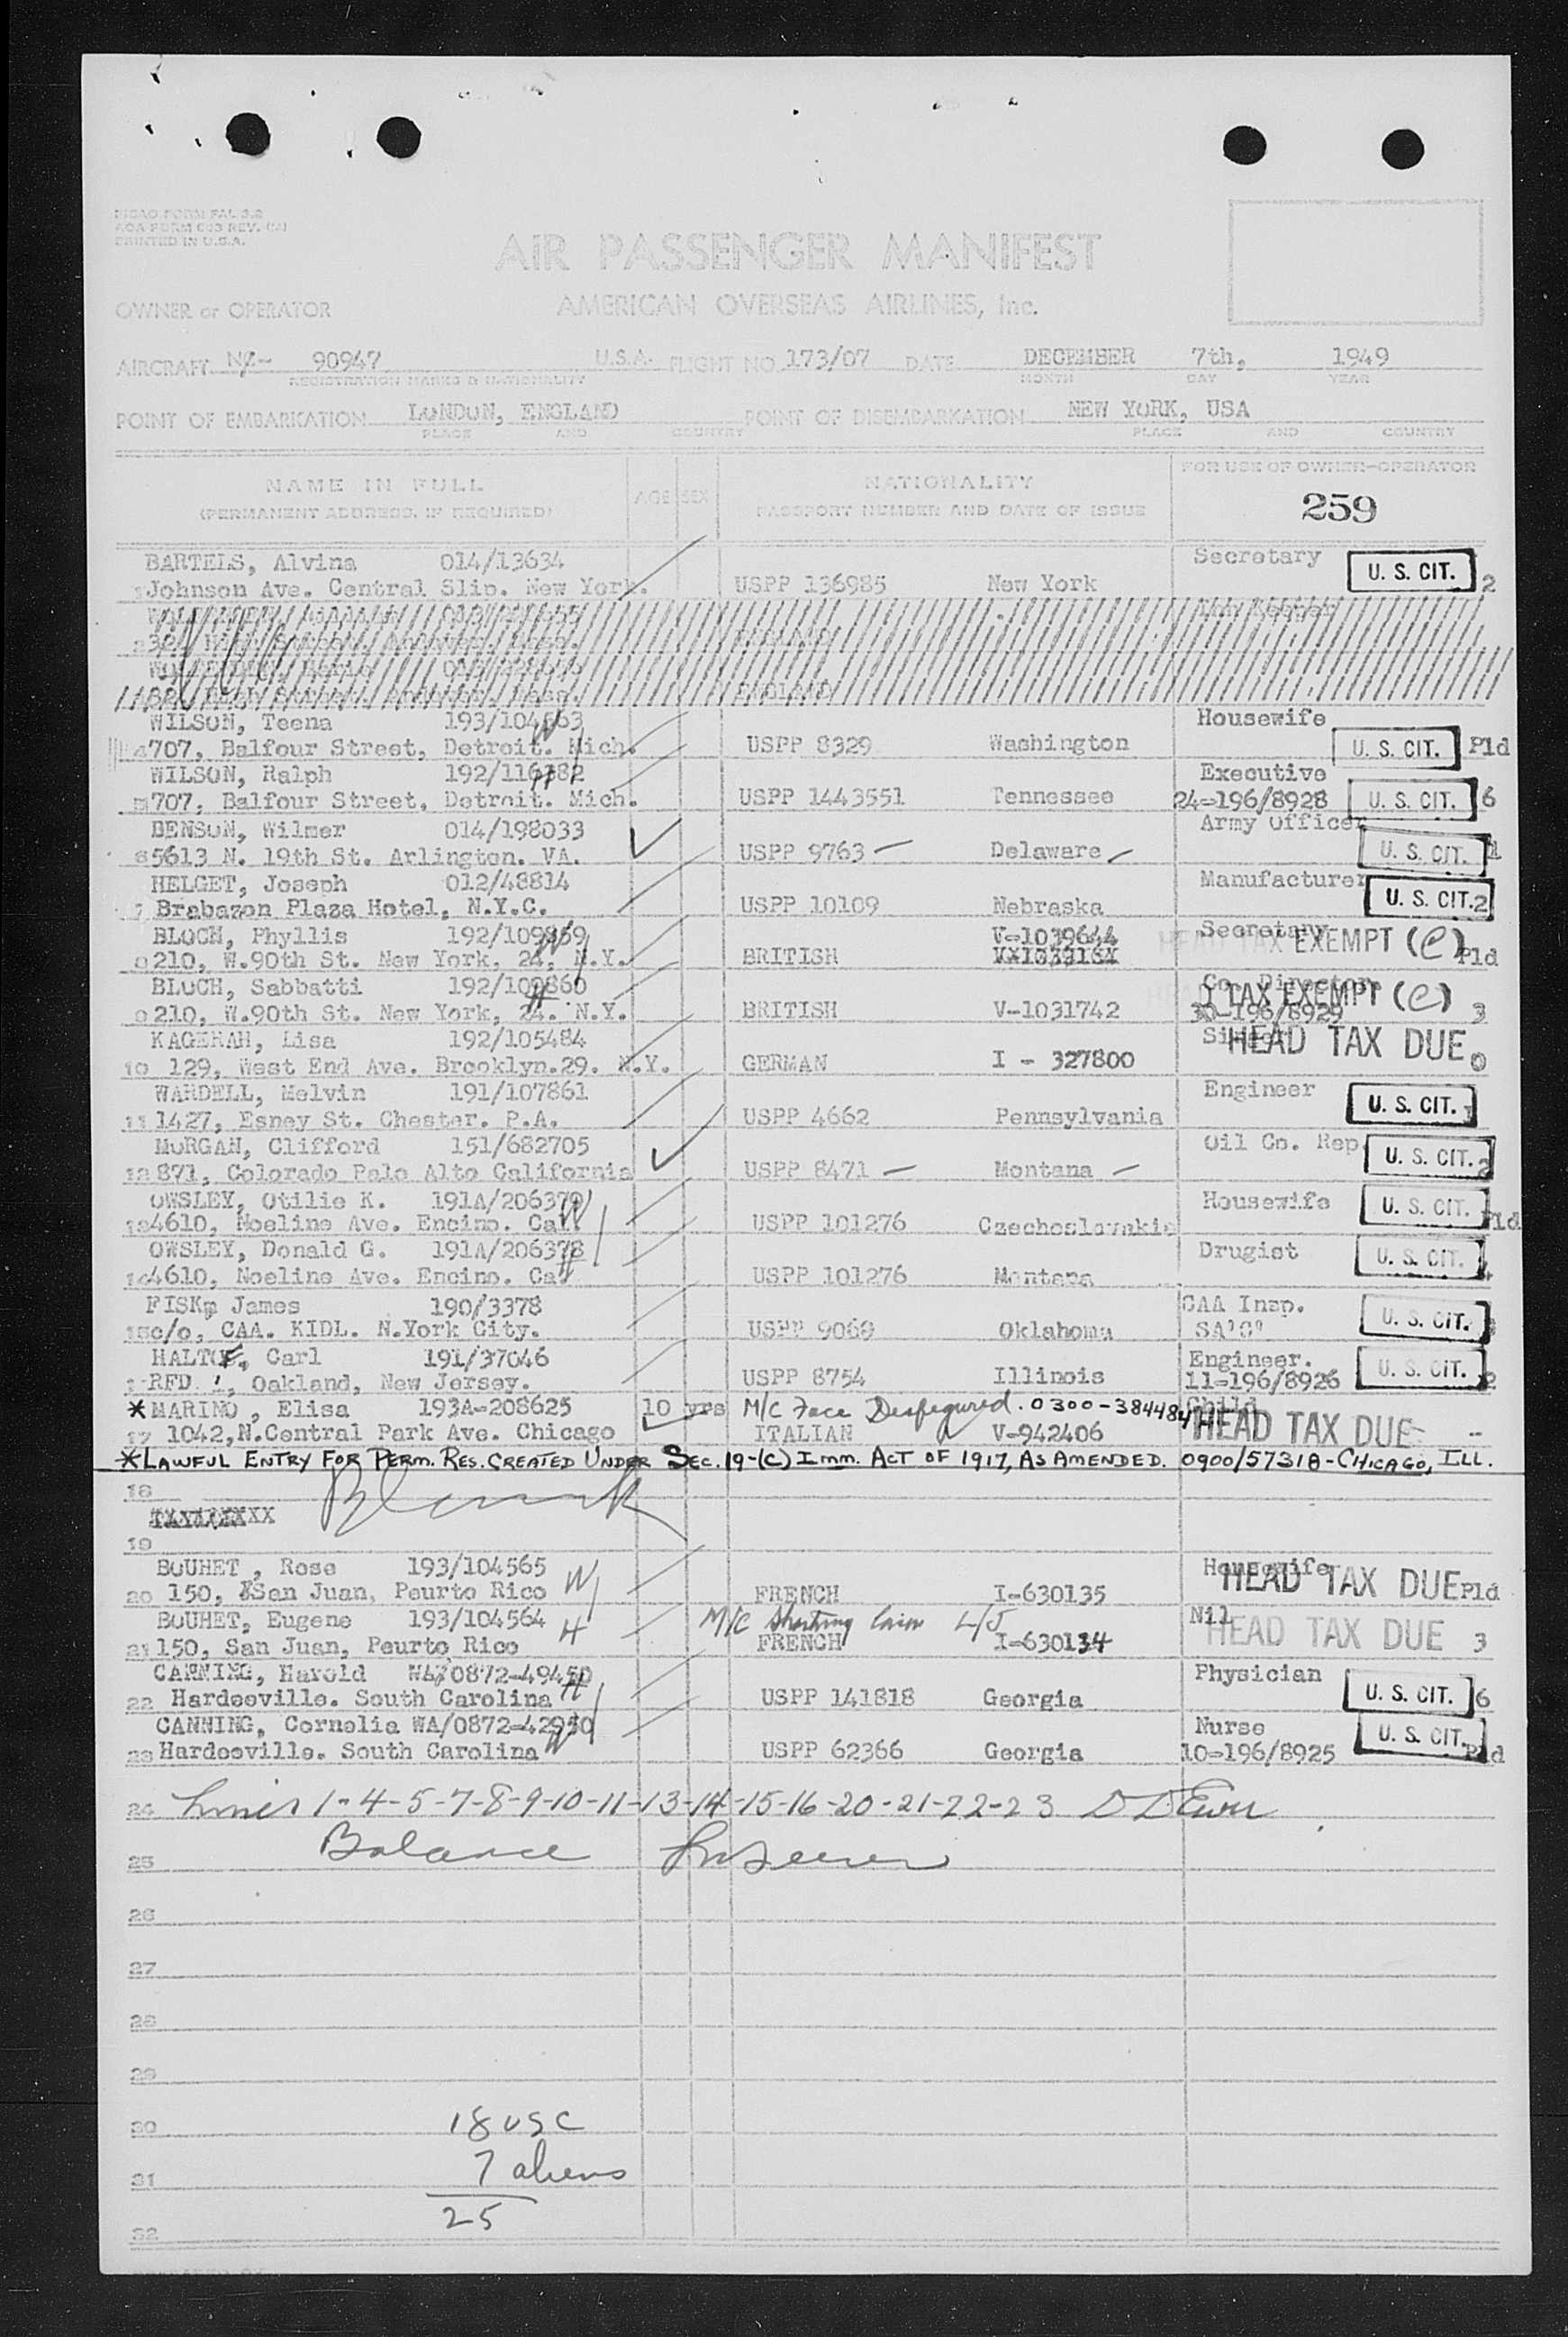 ICAO FORM FAL 3.2
AOA FORM 603 REV.
PRINTED IN U.S.A.
AIR PASSENGER MANIFEST
OWNER or OPERATOR AMERICAN OVERSEAS AIRLINES, Inc.
AIRCRAFT 90947 U.S.A. FLIGHT NO. 173/07 DATE DECEMBER 7th, 1949
REGISTRATION MARKS & NATIONALITY MONTH DAY YEAR
POINT OF EMBARKATION LONDON, ENGLAND POINT OF DISEMBARKATION NEW YORK, USA
PLACE AND COUNTRY PLACE AND COUNTRY
NAME IN FULL AGE SEX NATIONALITY FOR USE OF OWNER-OPERATOR
(PERMANENT ADDRESS, IF REQUIRED) PASSPORT NUMBER AND DATE OF ISSUE 259
BARTELS, Alvina 014/13634 Secretary U. S. CIT. 2
1 Johnson Ave. Central Slip. New York. USPP 136985 New York
WILSON, Teena 193/104563 W Housewife
4 707, Balfour Street, Detroit. Mich. USPP 8329 Washington U. S. CIT. Pld
WILSON, Ralph 192/116382 H Executive
5 707, Balfour Street, Detroit. Mich. USPP 1443551 Tennessee 24-196/8928 U. S. CIT. 6
BENSON, Wilmer 014/198033 Army Officer
6 5613 N. 19th St. Arlington. VA. USPP 9763 — Delaware — U. S. CIT. 1
HELGET, Joseph 012/48814 Manufacturer
7 Brabazon Plaza Hotel, N.Y.C. USPP 10109 Nebraska U. S. CIT. 2
BLOCH, Phyllis 192/109859 W V-1039644 Secretary HEAD TAX EXEMPT (C)
8 210, W.90th St. New York, 24, N.Y. BRITISH Pld
BLOCH, Sabbatti 192/109860 H Co. Director. TAX EXEMPT (C)
9 210, W.90th St. New York, 24. N.Y. BRITISH V-1031742 30-196/8929 3
KAGERAH, Lisa 192/105484 HEAD TAX DUE
10 129, West End Ave. Brooklyn.29. N.Y. GERMAN I - 327800 0
WARDELL, Melvin 191/107861 Engineer U. S. CIT. 1
11 1427, Esney St. Chester. P.A. USPP 4662 Pennsylvania
MORGAN, Clifford 151/682705 Oil Co. Rep U. S. CIT. 2
12 871, Colorado Palo Alto California USPP 8471 — Montana —
OWSLEY, Otilie K. 191A/206379 W Housewife U. S. CIT. Pld
13 4610, Noeline Ave. Encino. Cal. USPP 101276 Czechoslovakia
OWSLEY, Donald G. 191A/206378 H Drugist U. S. CIT.
14 4610, Noeline Ave. Encino. Cal. USPP 101276 Montana
FISK, James 190/3378 CAA Insp. U. S. CIT.
15 c/o, CAA. KIDL. N.York City. USPP 9068 Oklahoma
HALTOE, Carl 191/37046 Engineer. U. S. CIT. 2
RFD 1, Oakland, New Jersey. USPP 8754 Illinois 11-196/8926
*MARINO, Elisa 193A-208625 10 yrs M/C Face Desfegured. 0300-384484 Child HEAD TAX DUE
17 1042,N.Central Park Ave. Chicago ITALIAN V-942406 -
*LAWFUL ENTRY FOR PERM. RES. CREATED UNDER SEC. 19-(C) IMM. ACT OF 1917, AS AMENDED. 0900/57318-CHICAGO, ILL.
18 Blank
19
BOUHET, Rose 193/104565 W Housewife HEAD TAX DUE Pld
20 150, San Juan, Peurto Rico FRENCH I-630135
BOUHET, Eugene 193/104564 H M/C L/J Nil HEAD TAX DUE
21 150, San Juan, Peurto Rico FRENCH I-630134 3
CANNING, Harold 0872-49450 H Physician U. S. CIT. 6
22 Hardeeville. South Carolina USPP 141818 Georgia
CANNING, Cornelia WA/0872-42950 W Nurse U. S. CIT. Pld
23 Hardeeville. South Carolina USPP 62366 Georgia 10-196/8925
24 Lines 1-4-5-7-8-9-10-11-13-14-15-16-20-21-22-23
25 Balance
26
27
28
29
30 18 USC
31 7 aliens
32 25